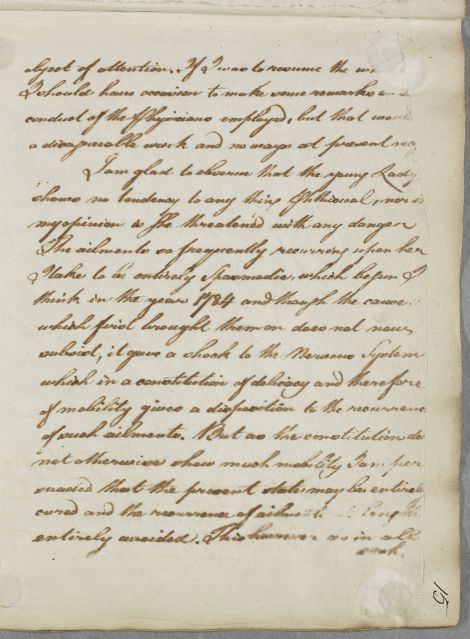 object of attention. If I was to resume the
I should have occasion to make some remarks on
conduct of the Physicians employed, but that would
a disagreeable work and no ways at present
I am glad to observe that the young Lady
shows no tendency to any thing Phthisical, nor in
my opinion is She threatened with any danger
The ailments so frequently recurring upon her
I take to be entirely Spasmodic, which begun I
think in the year 1784 and though the cause
which first brought them on does not now
subsist, it gave a shock to the Nervous System
which in a constitution of delicacy and therefore
of mobility gives a disposition to the recurrence
of such ailments. But as the constitution does
not otherwise show much mobility I am per
suaded that the present state may be entirely
cured and the recurrence of ailments at length
entirely avoided. This however as in all
such
15